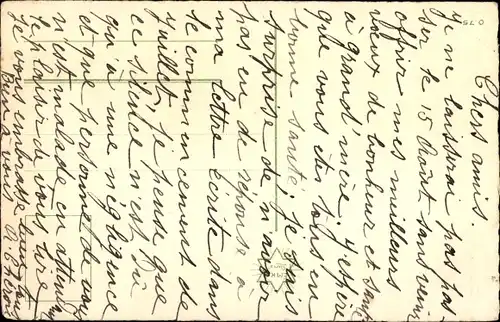 Chers amis.
Je ne laisserai pas pas-
ser le 15 Août sans venir
offrir mes meilleurs
vœux de bonheur et santé
à grand'mère. J'espère
que vous êtes tous en
bonne santé, je suis
surprise de n'avoir
pas eu de réponse à
ma lettre écrite dans
le commencement de
juillet. je pense que
ce silence n'est dû
qu'à une négligence
et que personne de vous
n'est malade, en attendant
le plaisir de vous lire
je vous embrasse
Bien à vous